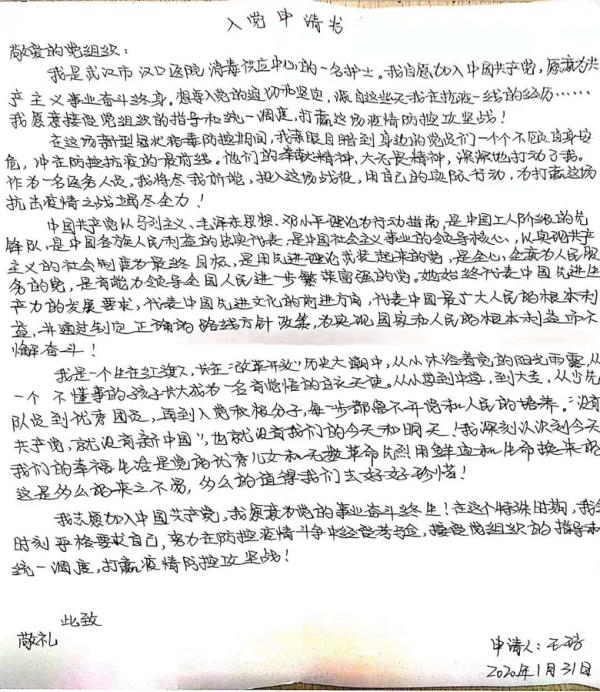 入党申请书
敬爱的党组织:
我是武汉市汉口医院消毒供应中心的一名护士。我自愿加入中国共产党,愿意为共
产主义事业奋斗终身。想要入党的迫切和坚定,源自这些天我在抗疫一线的经历……
我愿意接受党组织的指导和统一调度,打赢这场疫情防控攻坚战!
在这场新型冠状病毒防控期间,我亲眼目睹到身边的党员们一个个不顾自身安
危,冲在防控抗疫的最前线。他们的奉献精神,大无畏精神,深深地打动了我。
作为一名医务人员,我将尽我所能,投入这场战役,用自己的实际行动,为打赢这场
抗击疫情之战竭尽全力!
中国共产党以马列主义、毛泽东思想、邓小平理论为行动指南,是中国工人阶级的先
锋队,是中国各族人民利益的忠实代表,是中国社会主义事业的领导核心,以实现共产
主义的社会制度为最终目标,是用先进理论武装起来的党,是全心全意为人民服
务的党,是有能力领导全国人民进一步繁荣富强的党。她始终代表中国先进生
产力的发展要求,代表中国先进文化的前进方向,代表中国最广大人民的根本利
益,并通过制定正确的路线方针政策,为实现国家和人民的根本利益而不
懈奋斗!
我是一个生在红旗下,长在“改革开放”历史大潮中,从小沐浴着党的阳光雨露,从
一个不懂事的孩子长大成为一名有觉悟的白衣天使。从小学到中学,到大专,从少先
队员到优秀团员,再到入党积极分子,每一步都离不开党和人民的培养。“没有
共产党,就没有新中国”,也就没有我们的今天和明天!我深刻认识到今天
我们的幸福生活是党的优秀儿女和无数革命先烈用鲜血和生命换来的
这是多么的来之不易,多么的值得我们去好好珍惜!
我志愿加入中国共产党,我愿意为党的事业奋斗终生!在这个特殊时期,我会
时刻严格要求自己,努力在防控疫情斗争中经受考验,接受党组织的指导和
统一调度,打赢疫情防控攻坚战!
此致
敬礼
申请人:王
2020年1月31日